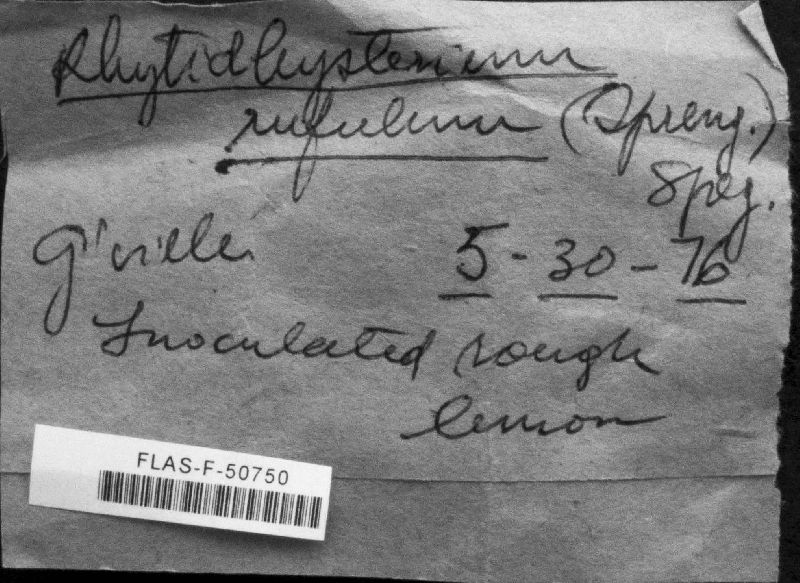 Rhytidhysterium
rufulum (Spreng.)
Speg.
G'ville 5-30-76
Inoculated rough
lemon
FLAS-F-50750